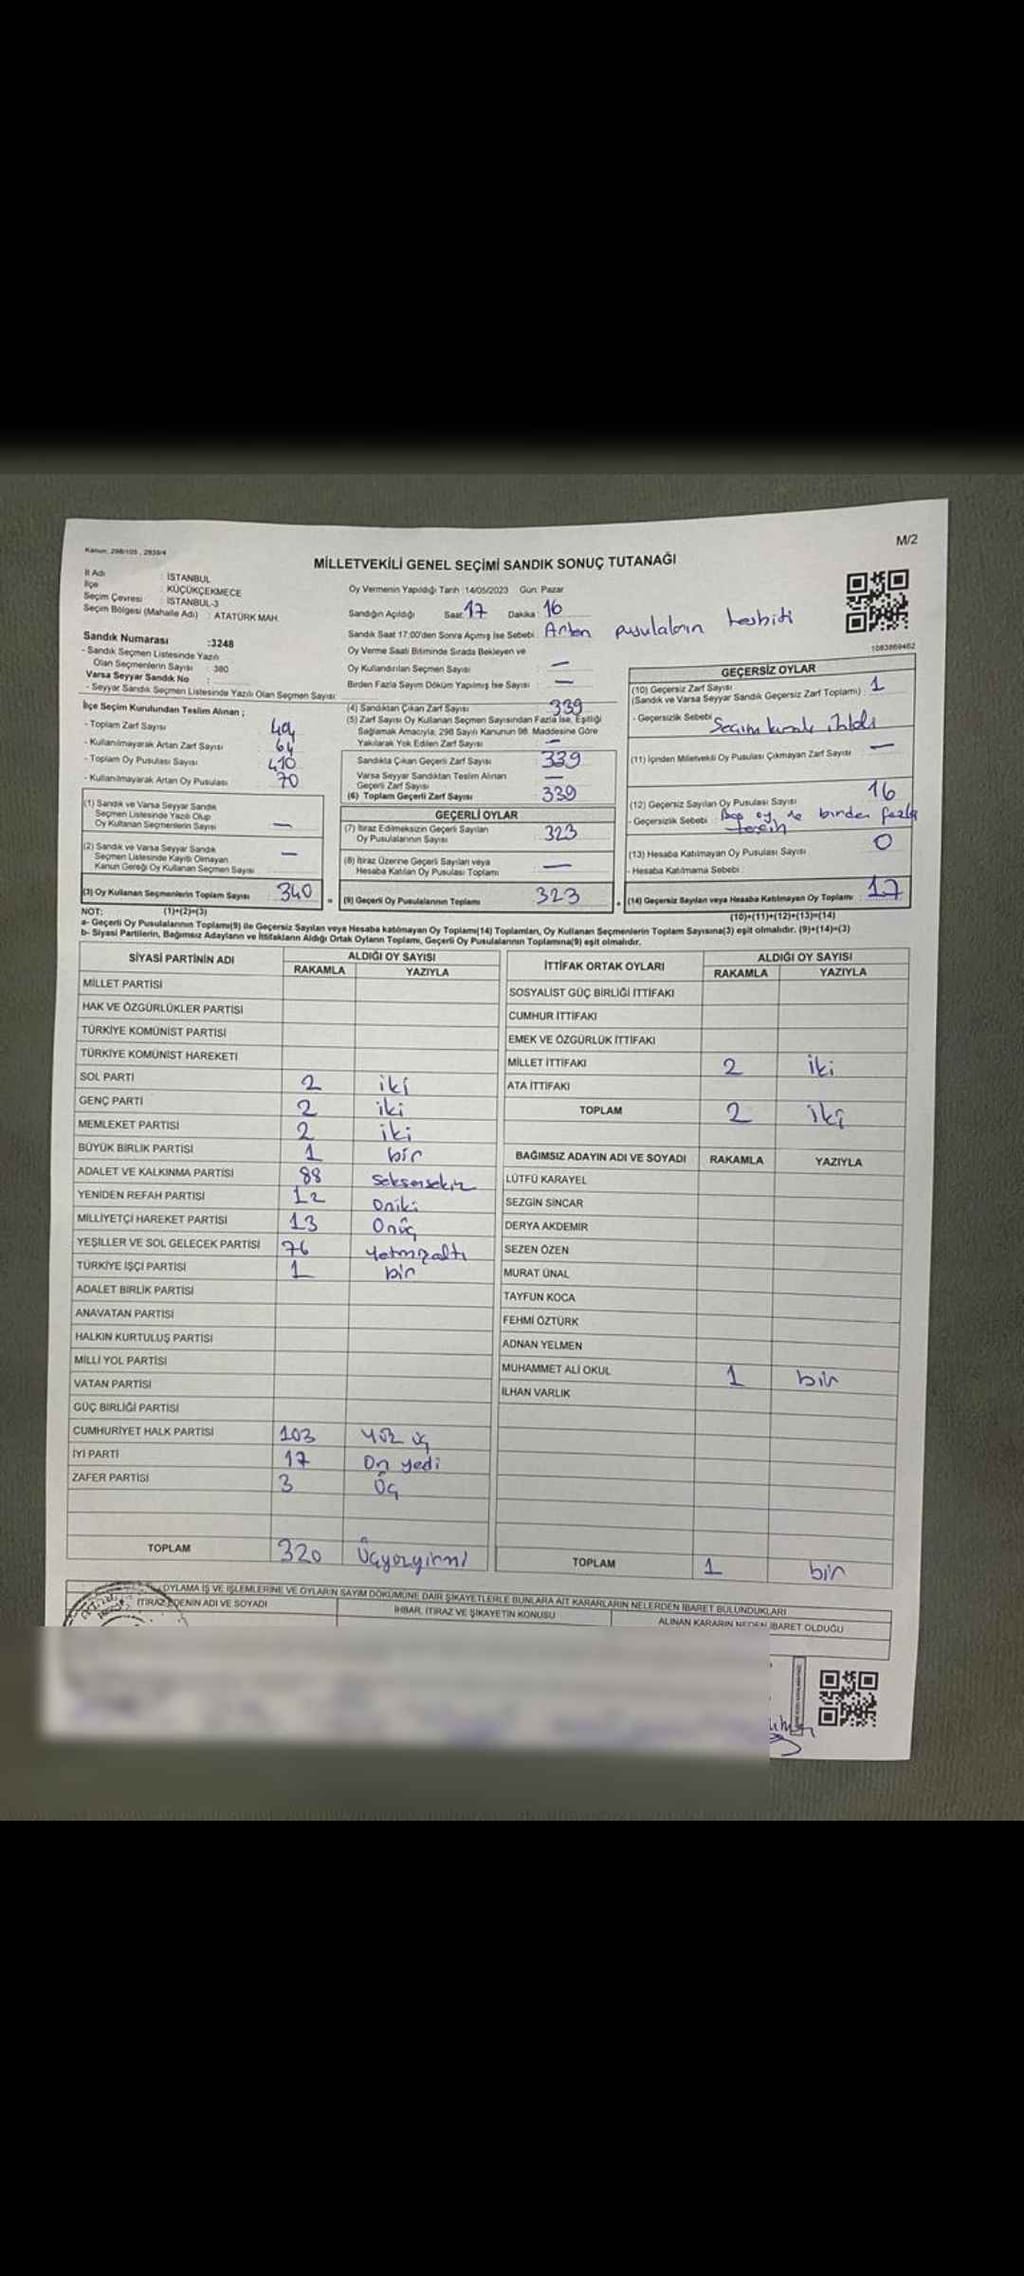 Kanun: 298/105 , 2839/4
M/2
MİLLETVEKİLİ GENEL SEÇİMİ SANDIK SONUÇ TUTANAĞI
İl Adı : İSTANBUL
İlçe : KÜÇÜKÇEKMECE
Seçim Çevresi : İSTANBUL-3
Seçim Bölgesi (Mahalle Adı) : ATATÜRK MAH.
Oy Vermenin Yapıldığı Tarih :14/05/2023 Gün: Pazar
Sandığın Açıldığı Saat: 17 Dakika: 16
Sandık Saat 17:00'den Sonra Açımış İse Sebebi: Artan pusulaların tesbiti
Oy Verme Saati Bitiminde Sırada Bekleyen ve
Oy Kullandırılan Seçmen Sayısı : —
Birden Fazla Sayım Döküm Yapılmış İse Sayısı : —
1083869462
Sandık Numarası :3248
- Sandık Seçmen Listesinde Yazılı
Olan Seçmenlerin Sayısı : 380
Varsa Seyyar Sandık No :
- Seyyar Sandık Seçmen Listesinde Yazılı Olan Seçmen Sayısı:
İlçe Seçim Kurulundan Teslim Alınan ;
- Toplam Zarf Sayısı : 404
- Kullanılmayarak Artan Zarf Sayısı : 64
- Toplam Oy Pusulası Sayısı : 410
- Kullanılmayarak Artan Oy Pusulası : 70
(1) Sandık ve Varsa Seyyar Sandık
Seçmen Listesinde Yazılı Olup
Oy Kullanan Seçmenlerin Sayısı : —
(2) Sandık ve Varsa Seyyar Sandık
Seçmen Listesinde Kayıtlı Olmayan
Kanun Gereği Oy Kullanan Seçmen Sayısı : —
(3) Oy Kullanan Seçmenlerin Toplam Sayısı : 340
(1)+(2)=(3)
(4) Sandıktan Çıkan Zarf Sayısı : 339
(5) Zarf Sayısı Oy Kullanan Seçmen Sayısından Fazla İse, Eşitliği
Sağlamak Amacıyla, 298 Sayılı Kanunun 98. Maddesine Göre
Yakılarak Yok Edilen Zarf Sayısı : —
Sandıkta Çıkan Geçerli Zarf Sayısı : 339
Varsa Seyyar Sandıktan Teslim Alınan
Geçerli Zarf Sayısı : —
(6) Toplam Geçerli Zarf Sayısı : 339
GEÇERLİ OYLAR
(7) İtiraz Edilmeksizin Geçerli Sayılan
Oy Pusulalarının Sayısı : 323
(8) İtiraz Üzerine Geçerli Sayılan veya
Hesaba Katılan Oy Pusulası Toplamı : —
= (9) Geçerli Oy Pusulalarının Toplamı : 323
GEÇERSİZ OYLAR
(10) Geçersiz Zarf Sayısı
(Sandık ve Varsa Seyyar Sandık Geçersiz Zarf Toplamı) : 1
- Geçersizlik Sebebi : Seçim kuralı ihlali
(11) İçinden Milletvekili Oy Pusulası Çıkmayan Zarf Sayısı : —
(12) Geçersiz Sayılan Oy Pusulası Sayısı : 16
- Geçersizlik Sebebi : Boş oy ve birden fazla
tercih
(13) Hesaba Katılmayan Oy Pusulası Sayısı : 0
- Hesaba Katılmama Sebebi :
+ (14) Geçersiz Sayılan veya Hesaba Katılmayan Oy Toplamı : 17
(10)+(11)+(12)+(13)=(14)
NOT:
a- Geçerli Oy Pusulalarının Toplamı(9) ile Geçersiz Sayılan veya Hesaba katılmayan Oy Toplamı(14) Toplamları, Oy Kullanan Seçmenlerin Toplam Sayısına(3) eşit olmalıdır. (9)+(14)=(3)
b- Siyasi Partilerin, Bağımsız Adayların ve İttifakların Aldığı Ortak Oyların Toplamı, Geçerli Oy Pusulalarının Toplamına(9) eşit olmalıdır.
SİYASİ PARTİNİN ADI ALDIĞI OY SAYISI
RAKAMLA YAZIYLA
MİLLET PARTİSİ
HAK VE ÖZGÜRLÜKLER PARTİSİ
TÜRKİYE KOMÜNİST PARTİSİ
TÜRKİYE KOMÜNİST HAREKETİ
SOL PARTİ 2 iki
GENÇ PARTİ 2 iki
MEMLEKET PARTİSİ 2 iki
BÜYÜK BİRLİK PARTİSİ 1 bir
ADALET VE KALKINMA PARTİSİ 88 seksensekiz
YENİDEN REFAH PARTİSİ 12 oniki
MİLLİYETÇİ HAREKET PARTİSİ 13 Onüç
YEŞİLLER VE SOL GELECEK PARTİSİ 76 yetmişaltı
TÜRKİYE İŞÇİ PARTİSİ 1 bir
ADALET BİRLİK PARTİSİ
ANAVATAN PARTİSİ
HALKIN KURTULUŞ PARTİSİ
MİLLİ YOL PARTİSİ
VATAN PARTİSİ
GÜÇ BİRLİĞİ PARTİSİ
CUMHURİYET HALK PARTİSİ 103 yüz üç
İYİ PARTİ 17 On yedi
ZAFER PARTİSİ 3 Üç
TOPLAM 320 Üçyüzyirmi
İTTİFAK ORTAK OYLARI ALDIĞI OY SAYISI
RAKAMLA YAZIYLA
SOSYALİST GÜÇ BİRLİĞİ İTTİFAKI
CUMHUR İTTİFAKI
EMEK VE ÖZGÜRLÜK İTTİFAKI
MİLLET İTTİFAKI 2 iki
ATA İTTİFAKI
TOPLAM 2 iki
BAĞIMSIZ ADAYIN ADI VE SOYADI RAKAMLA YAZIYLA
LÜTFÜ KARAYEL
SEZGİN SİNCAR
DERYA AKDEMİR
SEZEN ÖZEN
MURAT ÜNAL
TAYFUN KOCA
FEHMİ ÖZTÜRK
ADNAN YELMEN
MUHAMMET ALİ OKUL 1 bir
İLHAN VARLIK
TOPLAM 1 bir
OYLAMA İŞ VE İŞLEMLERİNE VE OYLARIN SAYIM DÖKÜMÜNE DAİR ŞİKAYETLERLE BUNLARA AİT KARARLARIN NELERDEN İBARET BULUNDUKLARI
İTİRAZ EDENİN ADI VE SOYADI İHBAR, İTİRAZ VE ŞİKAYETİN KONUSU ALINAN KARARIN NEDEN İBARET OLDUĞU